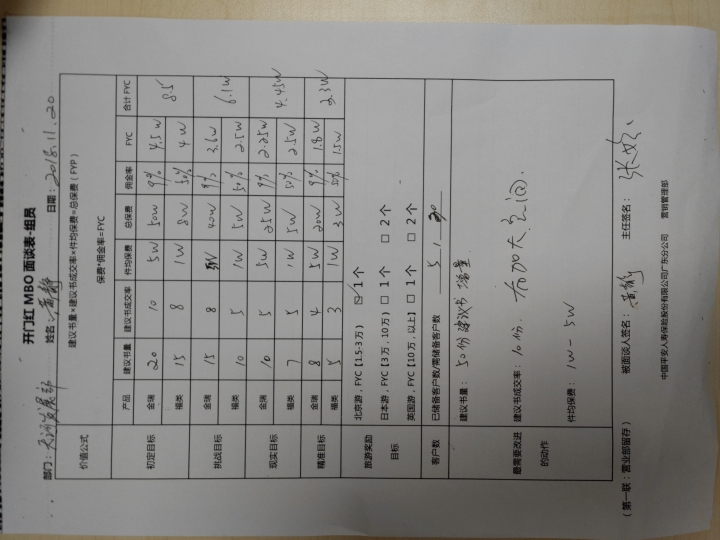 开门红 MBO 面谈表-组员
部门：天河发展部 姓名：黄静 日期：2018.11.20
价值公式 建议书量×建议书成交率×件均保费=总保费（FYP）
保费*佣金率=FYC
产品 建议书量 建议书成交率 件均保费 总保费 佣金率 FYC 合计 FYC
初定目标 金瑞 20 10 5W 50W 9% 4.5W 8.5
福类 15 8 1W 8W 50% 4W
挑战目标 金瑞 15 8 5W 40W 9% 3.6W 6.1W
福类 10 5 1W 5W 50% 2.5W
现实目标 金瑞 10 5 5W 25W 9% 2.25W 4.45W
福类 7 5 1W 5W 50% 2.5W
精准目标 金瑞 8 4 5W 20W 9% 1.8W 3.3W
福类 5 3 1W 3W 50% 1.5W
旅游奖励
目标
北京游，FYC【1.5-3万） ☑ 1个
日本游，FYC【3万，10万） □ 1个 □ 2个
英国游，FYC【10万，以上】 □ 1个 □ 2个
客户数 已储备客户数/需储备客户数 5，20
最需要改进
的动作
建议书量：50份建议书增量
建议书成交率：10份. 加大空间.
件均保费：1W-5W
（第一联：营业部留存） 被面谈人签名：黄静 主任签名：张
中国平安人寿保险股份有限公司广东分公司 营销管理部